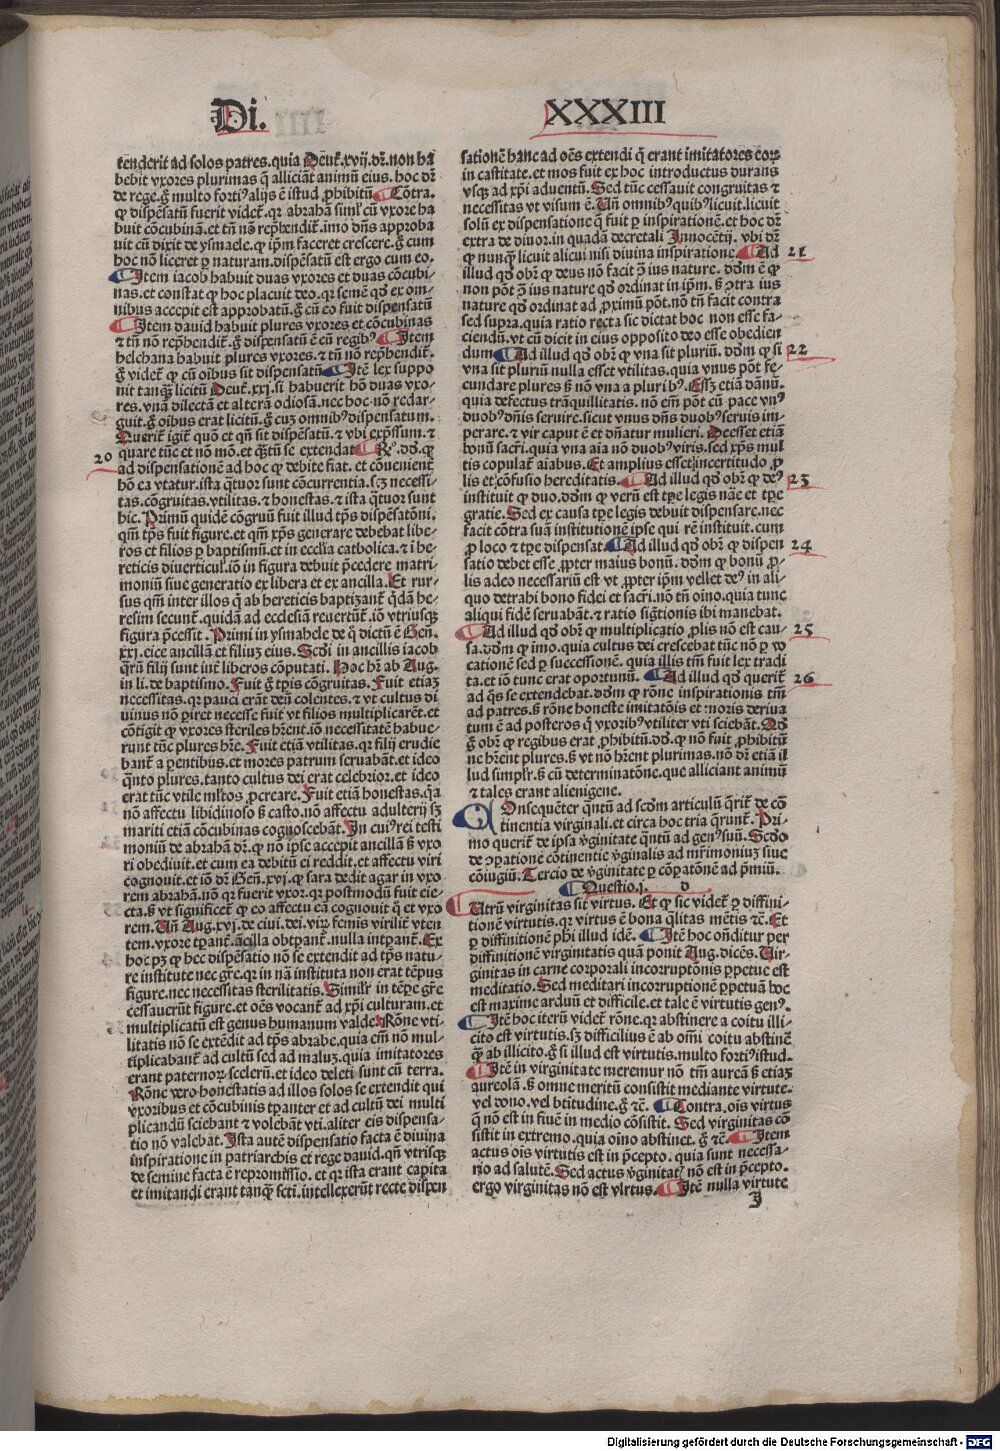 Di. XXXIII
tenderit ad solos patres. quia Deut̄. xvij. dr̄. non ha
bebit vxores plurimas q̄ alliciāt animū eius. hoc dr̄
de rege. g̊ multo forti⁹ alijs ē istud ꝓhibitū ¶ Cōtra.
ꝙ dispēsatū fuerit videt̄. qr abrahā simĺ cū vxore ha
buit cōcubinā. et tn̄ nō rep̄hendit̄. imo dn̄s approba
uit cū dixit de ysmaele. ꝙ ip̄m faceret crescere. g̊ cum
hoc nō liceret ꝑ naturam. dispēsatū est ergo cum eo.
¶ Item iacob habuit duas vxores et duas cōcubi
nas. et constat ꝙ hoc placuit deo. qr semē qd̓ ex om-
nibus accepit est approbatū. g̊ cū eo fuit dispensatū
¶ Item dauid habuit plures vxores et cōcubinas
⁊ tn̄ nō rep̄hendit̄. g̊ dispensatū ē cū regib⁹ ¶ Item
helchana habuit plures vxores. ⁊ tn̄ nō rep̄hendit̄.
g̊ videt̄ ꝙ cū oībus sit dispensatū ¶ Itē lex suppo
nit tanq̄ȝ licitū Deut̄. xxj. si habuerit hō duas vxo-
res. vnā dilectā et alterā odiosā. nec hoc nō redar-
guit. g̊ oībus erat licitū. g̊ cuȝ omnib⁹ dispensatum.
Querit̄ igit̄ quō et qn̄ sit dispēsatū. ⁊ vbi exp̄ssum. ⁊
20 quare tūc et nō mō. et q̄ȝtū se extendat ¶ Rō. dō. ꝙ
ad dispensationē ad hoc ꝙ debite fiat. et cōuenient̄
hō ea vtatur. ista q̄tuor sunt cōcurrentia. sȝ necessi-
tas. cōgruitas. vtilitas. ⁊ honestas. ⁊ ista q̄tuor sunt
hic. Primū quidē cōgruū fuit illud tp̄s dispēsatōni.
qm̄ tp̄s fuit figure. et qm̄ xp̄s generare debebat libe-
ros et filios ꝑ baptismū. et in ecclīa catholica. ⁊ ī he-
reticis diuerticuĺ. iō in figura debuit p̄cedere matri-
moniū siue generatio ex libera et ex ancilla. Et rur-
sus qm̄ inter illos q̄ ab hereticis baptizant̄ q̄dā he-
resim secunt̄. quidā ad ecclesiā reuertūt̄. iō vtriusqȝ
figura p̄cessit. Primi in ysmahele de q̊ dictū ē Gen̄.
xxj. eice ancillā et filiuȝ eius. Scdī in ancillis iacob
q̄rū filij sunt int̄ liberos cōputati. Hoc hr̄ ab Aug.
in li. de baptismo. Fuit g̊ tp̄is cōgruitas. Fuit etiaȝ
necessitas. qr pauci erāt deū colentes. ⁊ vt cultus di
uinus nō ꝑiret necesse fuit vt filios multiplicarēt. et
cōtigit ꝙ vxores steriles hr̄ent. iō necessitatē habue-
runt tūc plures hr̄e. Fuit etiā vtilitas. qr filij erudie
bant̄ a ꝑentibus. et mores patrum seruabāt. et ideo
q̄nto plures. tanto cultus dei erat celebrior. et ideo
erat tūc vtile ml̓tos ꝓcreare. Fuit etiā honestas. q̄a
nō affectu libidinoso sȝ casto. nō affectu adulterij sȝ
mariti etiā cōcubinas cognoscebāt. In cui⁹ rei testi
moniū de abrahā dr̄. ꝙ nō ipse accepit ancillā sȝ vxo
ri obediuit. et cum ea debitū ei reddit. et affectu viri
cognouit. et iō dr̄ Gen̄. xvj. ꝙ sara dedit agar in vxo
rem abrahā. nō qr fuerit vxor. qr postmodū fuit eie-
cta. sȝ vt significet̄ ꝙ eo affectu eā cognouit q̊ et vxo
rem. Un̄ Aug. xvj. de ciui. dei. viȝ femis virilit̄ vten
tem. vxore tꝑant̄. ācilla obtꝑant̄. nulla intꝑant̄. Ex
hoc pȝ ꝙ hec dispēsatio nō se extendit ad tp̄s natu-
re institute nec gr̄e. qr in nā instituta non erat tēpus
figure. nec necessitas sterilitatis. Simiĺr in tēpe gr̄e
cessauerūt figure. et oēs vocant̄ ad xp̄i culturam. et
multiplicatū est genus humanum valde. Rōne vti-
litatis nō se extēdit ad tp̄s abrabe. quia em̄ nō mul-
tiplicabant̄ ad cultū sed ad maluȝ. quia imitatores
erant paternorȝ scelerū. et ideo deleti sunt cū terra.
Rōne vero honestatis ad illos solos se extendit qui
vxoribus et cōcubinis tꝑanter et ad cultū dei multi
plicandū sciebant ⁊ volebāt vti. aliter eis dispensa-
tio nō valebat. Ista autē dispensatio facta ē diuina
inspiratione in patriarchis et rege dauid. qn̄ vtrisqȝ
de semine facta ē repromissio. et qr ista erant capita
et imitandi erant tanqȝ scti. intellexerūt recte dispen
sationē hanc ad oēs extendi q̄ erant imitatores eorȝ
in castitate. et mos fuit ex hoc introductus durans
vsqȝ ad xp̄i aduentū. Sed tūc cessauit congruitas ⁊
necessitas vt visum ē. Un̄ omnib⁹ quib⁹ licuit. licuit
solū ex dispensatione q̄ fuit ꝑ inspirationē. et hoc dr̄
extra de diuor. in quadā decretali Innocētij. vbi dr̄
ꝙ nunqȝ licuit alicui nisi diuina inspiratione. ¶ Ad 21
illud qd̓ obr̄ ꝙ deus nō facit ꝯ̄ ius nature. dōm ē ꝙ
non pōt ꝯ̄ ius nature qd̓ ordinat in ip̄m. sȝ ꝯtra ius
nature qd̓ ordinat ad ꝓximū pōt. nō tn̄ facit contra
sed supra. quia ratio recta sic dictat hoc non esse fa-
ciendū. vt cū dicit in eius opposito deo esse obedien
dum ¶ Ad illud qd̓ obr̄ ꝙ vna sit pluriū. dōm ꝙ si 22
vna sit pluriū nulla esset vtilitas. quia vnus pōt fe-
cundare plures sȝ nō vna a plurib⁹. Essȝ etiā dānū.
quia defectus trāquillitatis. nō em̄ pōt cū pace vn⁹
duob⁹ dn̄is seruire. sicut vnus dn̄s duob⁹ seruis im-
perare. ⁊ vir caput ē et dn̄atur mulieri. Deesset etiā
bonū sacr̄i. quia vna aīa nō duob⁹ viris. sed xp̄s mul
tis copulat̄ aīabus. Et amplius esset incertitudo ꝓ
lis et cōfusio hereditatis. ¶ Ad illud qd̓ obr̄ ꝙ de⁹ 23
instituit ꝙ duo. dōm ꝙ verū est tp̄e legis nāe et tp̄e
gratie. Sed ex causa tp̄e legis debuit dispensare. nec
facit cōtra suā institutionē ipse qui rē instituit. cum
ꝓ loco ⁊ tp̄e dispensat. ¶ Ad illud qd̓ obr̄ ꝙ dispen 24
satio debet esse ꝓpter maius bonū. dōm ꝙ bonū ꝓ-
lis adeo necessariū est vt ꝓpter ip̄m vellet de⁹ in ali-
quo detrahi bono fidei et sacr̄i. nō tn̄ oīno. quia tunc
aliqui fidē seruabāt. ⁊ ratio sig̓tionis ibi manebat.
¶ Ad illud qd̓ obr̄ ꝙ multiplicatio ꝓlis nō est cau- 25
sa. dōm ꝙ imo. quia cultus dei crescebat tūc nō ꝑ vo
cationē sed ꝑ successionē. quia illis tm̄ fuit lex tradi
ta. et iō tunc erat oportunū. ¶ Ad illud qd̓ querit̄ 26
ad q̄s se extendebat. dōm ꝙ rōne inspirationis tm̄
ad patres. sȝ rōne honeste imitatōis et moris deriua
tum ē ad posteros q̄ vxorib⁹ vtiliter vti sciebāt. Qd̓
g̊ obr̄ ꝙ regibus erat ꝓhibitū. dō. ꝙ nō fuit ꝓhibitū
ne hr̄ent plures. sȝ vt nō hr̄ent plurimas. nō dr̄ etiā il
lud simpĺr. sȝ cū determinatōne. que alliciant animū
⁊ tales erant alienigene.
Consequēter q̄ntū ad scdm articulū q̄rit̄ de cō
tinentia virginali. et circa hoc tria q̄runt̄. Pri-
mo querit̄ de ipsa ꝟginitate q̄ntū ad gen⁹ suū. Scdo
de ꝯꝑatione cōtinentie ꝟginalis ad mr̄imoniuȝ siue
cōiugiū. Tercio de ꝟginitate ꝑ cōꝑatōnē ad p̄miū.
¶ Questio. j. d
Utrū virginitas sit virtus. Et ꝙ sic videt̄ ꝑ diffini-
tionē virtutis. qr virtus ē bona q̄litas mētis ⁊c̄. Et
ꝑ diffinitionē ph̓i illud idē. ¶ Itē hoc on̄ditur per
diffinitionē virginitatis quā ponit Aug. dicēs. Vir-
ginitas in carne corporali incorruptōnis ꝑpetue est
meditatio. Sed meditari incorruptionē ꝑpetuā hoc
est maxime arduū et difficile. et tale ē virtutis gen⁹.
¶ Itē hoc iterū videt̄ rōne. qr abstinere a coitu illi-
cito est virtutis. sȝ difficilius ē ab om̄i coitu abstinē
q̄ȝ ab illicito. g̊ si illud est virtutis. multo forti⁹ istud.
¶ Itē in virginitate meremur nō tm̄ aureā sȝ etiaȝ
aureolā. sȝ omne meritū consistit mediante virtute.
vel dono. vel btitudine. g̊ ⁊c̄. ¶ Contra. oīs virtus
q̄ nō est in fine in medio cōsistit. Sed virginitas cō
sistit in extremo. quia oīno abstinet. g̊ ⁊c̄. ¶ Item
actus oīs virtutis est in p̄cepto. quia sunt necessa-
rio ad salutē. Sed actus ꝟginitat̄ nō est in p̄cepto.
ergo virginitas nō est virtus. ¶ Itē nulla virtute
J
Digitalisierung gefördert durch die Deutsche Forschungsgemeinschaft - DFG